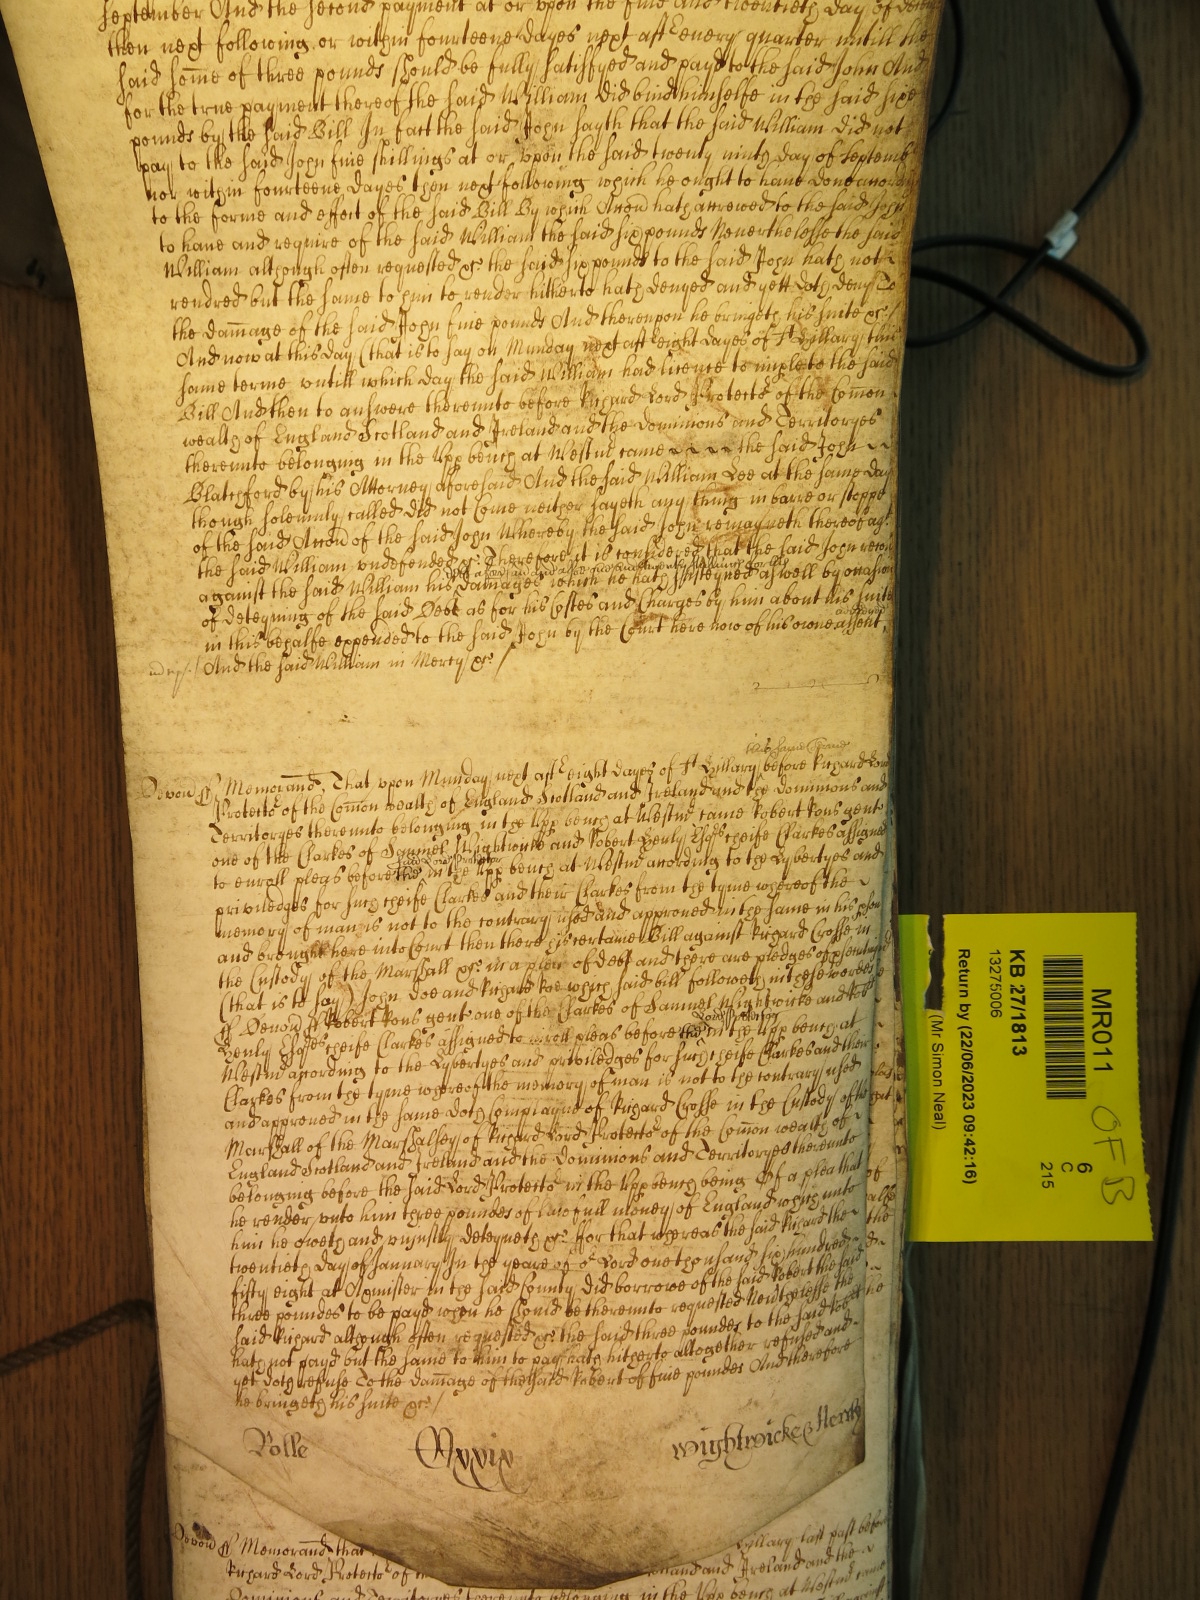 September And the second payment at or upon the five and twentieth day of
then next following or within fourteene dayes next aft every quarter untill the
said some of three pounds should be fully satisfyed and payd to the said John And
for the true payment thereof the said William did bind himselfe in the said sixe
pounds by the said Bill In fact the said John sayth that the said William did not
pay to the said John five shillings at or upon the said twenty ninth day of Septemb
nor within fourteene dayes then next following which he ought to have done
to the forme and effect of the said Bill By which Accon hath accrewed to the said John
to have and require of the said William the said six pounds Neverthelesse the said
William although often requested &c the said six pounds to the said John hath not
rendred but the same to him to render hitherto hath denyed and yett doth deny To
the damage of the said John five pounds And thereupon he bringeth his suite &c
And now at this day (that is to say on Munday next aft eight dayes of St Hillary this
same terme untill which day the said William had licence to imple to the said
Bill And then to answere thereunto before Richard Lord Protector of the Comon
wealth of England Scotland and Ireland and the dominions and Territoryes
thereunto belonging in the Upp bench at Westm came the said John
Blatchford by his Attorney aforesaid And the said William Lee at the same day
though solemnly called did not come neither sayeth any thing in barre or stoppe
of the said Accon of the said John Whereby the said John remayneth thereof agt
the said William undefended &c Therefore it is considered that the said John recov
against the said William his damages which he hath susteyned aswell by occasion
of deteyning of the said Debt as for his Costes and Charges by him about his suite
in this behalfe expended to the said John by the Court here now of his owne assent
adiudged
And the said William in Mercy &c
Devon ss Memorand That upon Munday next aft eight dayes of St Hillary this same Terme before Richard Lord
Protector of the Comon wealth of England Scotland and Ireland and the dominions and
Territoryes thereunto belonging in the Upp bench at Westm came Robert Fons gent
one of the Clarkes of Samuel Wightwicke and Robert Henly Esqs cheife Clarkes assigned
to enroll pleas before the said Lord Protector in the Upp bench at Westm according to the Lybertyes and
priviledges for such cheife Clarkes and their Clarkes from the tyme whereof the
memory of man is not to the contrary used and approved in the same in his pson
and brought here into Court then there his certaine Bill against Richard Crosse in
the Custody of the Marshall &c in a plea of debt and there are pledges of psecution
(that is to say) John Doe and Richard Roe which said bill followeth in these wordes
ss Devon ss Robert Fons gent one of the Clarkes of Samuel Wightwicke and Robt
Henly Esqs cheife Clarkes assigned to enroll pleas before the Lord Protector in the Upp bench at
Westm according to the Lybertyes and priviledges for such cheife Clarkes and their
Clarkes from the tyme whereof the memory of man is not to the contrary used
and approved in the same doth complayne of Richard Crosse in the Custody of the
Marshall of the Marshalsey of Richard Lord Protector of the Comon wealth of
England Scotland and Ireland and the dominions and Territoryes thereunto
belonging before the said Lord Protector in the Upp bench being Of a plea that
he render unto him three poundes of lawfull money of England which unto
him he oweth and unjustly deteyneth &c For that whereas the said Richard the
twentieth day of January In the yeare of or Lord one thousand six hundred
fifty eight at Axminster in the said County did borrowe of the said Robert the said
three poundes to be payd when he should be thereunto requested Neverthelesse the
said Richard although often requested &c the said three poundes to the said Robt
hath not payd but the same to him to pay hath hitherto altogether refused and
yet doth refuse To the damage of the said Robert of five poundes And therefore
he bringeth his suite &c
Rolle
Mxxix
Wightwicke & Henly
Devon ss Memorand that
Hillary last past before
Richard Lord Protector of
and Ireland and the
Dominions and Territoryes thereunto belonging in the Upp bench at Westm came
MR011
KB 27/1813
13275006
Return by (22/06/2023 09:42:16)
(Mr Simon Neal)
6
C
215
OF B